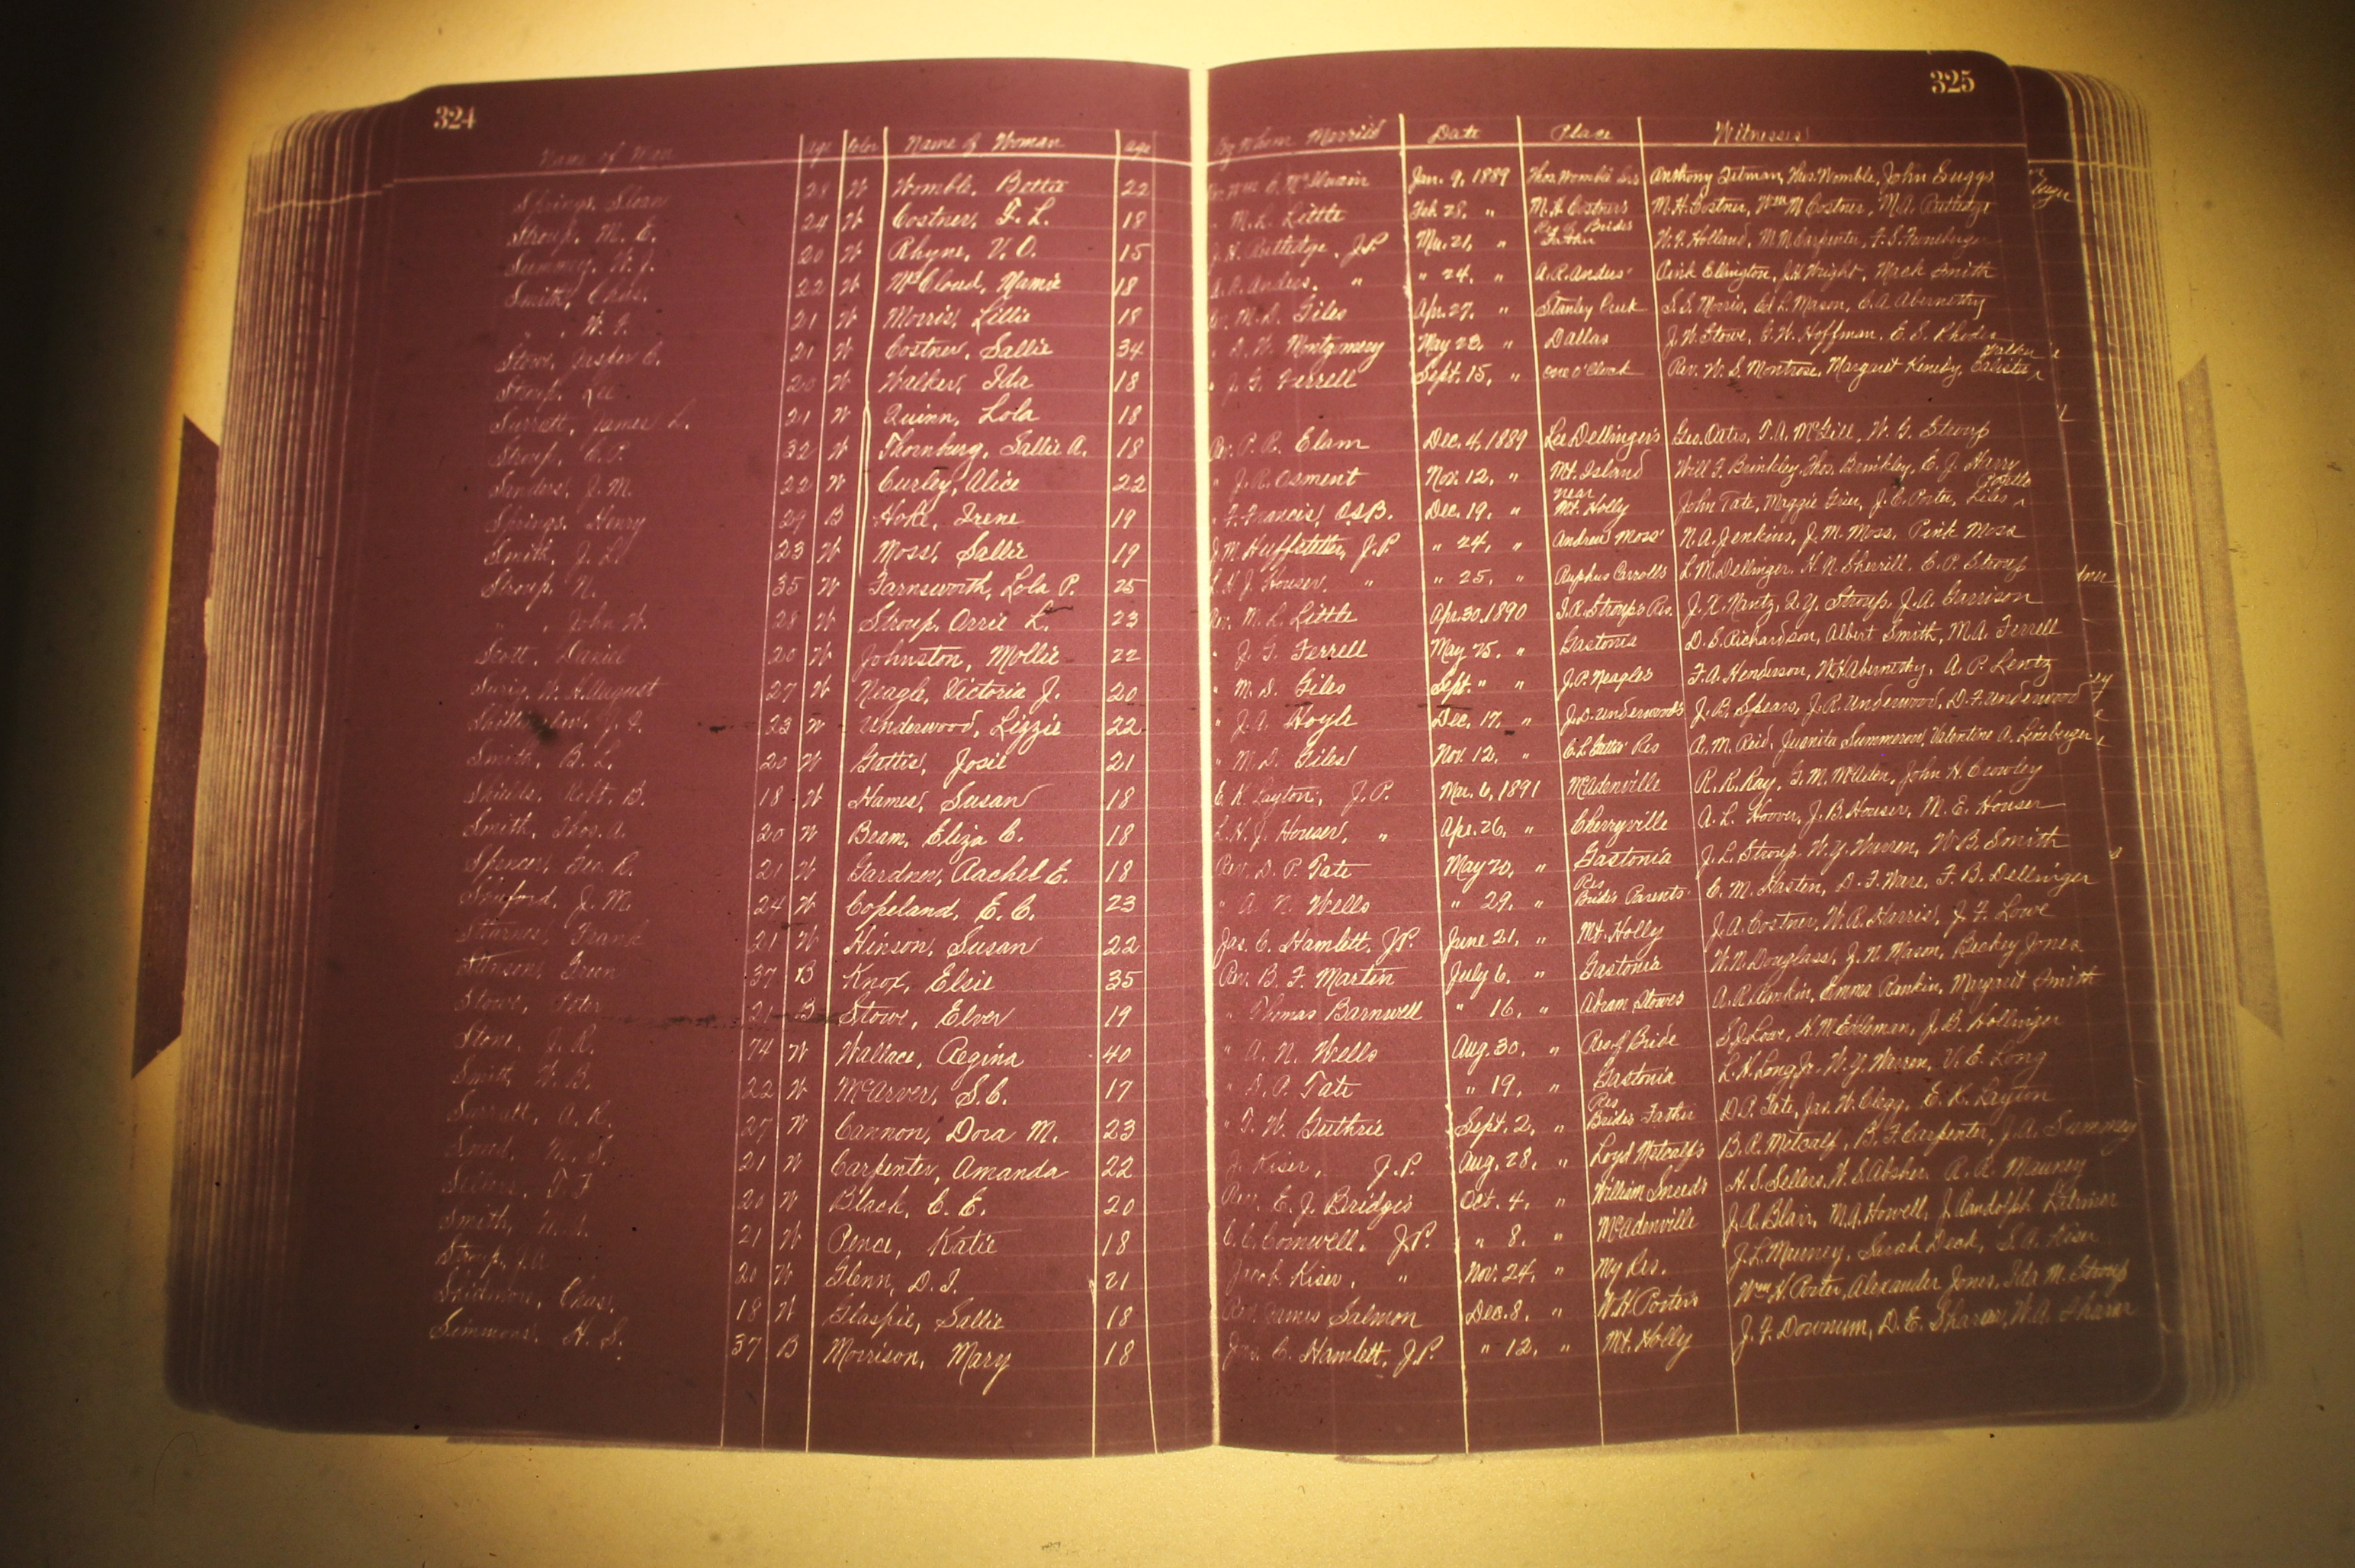 324
325
Name of Man age Color Name of Woman age By Whom Married Date Place Witnesses
Springs, Sloan 28 W Womble, Bettie 22 Jan. 9, 1889 Thos. Womble Anthony Titman, Thos. Womble, John Suggs
Stroup, M. E. 24 W Costner, F. L. 18 " M. L. Little Feb. 28, " M. H. Costner's M. H. Costner, Wm M Costner, M. A. Rutledge
Summey, W. J. 20 W Rhyne, V. O. 15 J. H. Rutledge, J.P. Mar. 21, " Res of Bride's Father W. F. Holland, M. M. Carpenter, F. S. Froneberger
Smith, Chas. 22 W McCloud, Mamie 18 A. R. Anders, " " 24, " A. R. Anders' Pink Ellington, J. H. Wright, Mack Smith
" , W. F. 21 W Morris, Lillie 18 Rev. M. D. Giles Apr. 27, " Stanley Creek S. S. Morris, Ed L. Mason, C. A. Abernethy
Stowe, Jasper C. 21 W Costner, Sallie 34 Montgomery May 20, " Dallas J. W. Stowe, G. W. Hoffman, E. S. Rhodes
Stroup, Lee 20 W Walker, Ida 18 " J. G. Ferrell Sept. 15, " one o'Clock Rev. W. S. Montrose, Margaret Walker
Sarratt, James L. 21 W Quinn, Lola 18
Stroup, C. P. 32 W Thornburg, Sallie A. 18 Rev. P. R. Elam Dec. 4, 1889 Lee Dellinger's Geo. Oates, T. A. McGill, W. G. Stroup
Sanders, J. M. 22 W Curley, Alice 22 " J. R. Osment Nov. 12, " Mt. Island Will F. Brinkley, Thos. Brinkley, E. J. Harry
Springs, Henry 29 B Hoke, Irene 19 " F. Francis, O.S.B. Dec. 19, " near Mt. Holly John Tate, Maggie Grier, J. C. Porter, Liles
Smith, J. L. 23 W Moss, Sallie 19 J. M. Huffstetler, J.P. " 24, " Andrew Moss' N. A. Jenkins, J. M. Moss, Pink Moss
Stroup, N. 35 W Farnsworth, Lola P. 25 L. H. J. Houser, " " 25, " Ruphus Carroll's L. M. Dellinger, H. N. Sherrill, C. P. Stroup
" , John W. 28 W Stroup, Orrie L. 23 Rev. M. L. Little Apr. 30, 1890 Stroup's Res. J. K. Nantz, Stroup, J. A. Garrison
Scott, Daniel 20 W Johnston, Mollie 22 " J. G. Ferrell May 25, " Gastonia D. S. Richardson, Albert Smith, M. A. Ferrell
W. H. August 27 W Neagle, Victoria J. 20 " M. D. Giles Sept. " " J. P. Neagle's F. A. Henderson, W. H. Abernethy, A. P. Lentz
23 W Underwood, Lizzie 22 " J. A. Hoyle Dec. 17, " J. D. Underwood's J. R. Spears, J. R. Underwood, D. F. Underwood
Smith, B. L. 20 W Gattis, Josie 21 " M. D. Giles Nov. 12, " C. L. Gattis' Res R. M. Reid, Juanita Summerow, Valentine A. Lineberger
Shields, Robt. B. 18 W Hames, Susan 18 E. K. Layton, J.P. Mar. 6, 1891 McAdenville R. R. Ray, G. M. McAden, John H. Crowley
Smith, Thos. A. 20 W Beam, Eliza C. 18 L. H. J. Houser, " Apr. 26, " Cherryville A. L. Hoover, J. B. Houser, M. E. Houser
Spencer, Geo. R. 21 W Gardner, Rachel E. 18 Rev. D. P. Tate May 20, " Gastonia J. L. Stroup, W. Y. Warren, W B. Smith
Shuford, J. M. 24 W Copeland, E. C. 23 " A. N. Wells " 29, " Res Bride's Parents C. M. Dasten, D. F. Ware, F. B. Dellinger
Starnes, Frank 21 W Hinson, Susan 22 Jas. C. Hamlett, J.P. June 21, " Mt. Holly J. A. Costner, W. R. Harris, J. F. Lowe
Stinson, Green 37 B Knox, Elsie 35 Rev. B. F. Martin July 6, " Gastonia W. N. Douglass, J. N. Mason, Beckey Jones
Stowe, Peter 21 B Stowe, Elver 19 " Thomas Barnwell " 16, " Abram Stowe's A. R. Rankin, Emma Rankin, Margaret Smith
Stone, J. R. 74 W Wallace, Regina 40 " A. N. Wells Aug. 30, " Res. of Bride S. J. Lowe, H. M. Eddleman, J. B. Hollinger
Smith, W. B. 22 W McArver, S. C. 17 " D. P. Tate " 19, " Gastonia L. H. Long Jr. W. Y. Warren, V. E. Long
Sarratt, A. R. 27 W Cannon, Dora M. 23 " T. W. Guthrie Sept. 2, " Res Bride's Father D. P. Tate, Jas. W. Clegg, E. K. Layton
Sneed, M. S. 21 W Carpenter, Amanda 22 J. Kiser, J.P. Aug. 28, " Loyd Metcalf's B. R. Metcalf, B. F. Carpenter, J. A. Summey
Sellers, T. F. 20 W Black, C. E. 20 Rev. E. J. Bridges Oct. 4, " William Sneed's H. S. Sellers, W. S. Absher, R. R. Mauney
Smith, 21 W Pence, Katie 18 C. C. Cornwell, J.P. " 8, " McAdenville J. R. Blair, M. A. Howell, J. Randolph
Stroup, 20 W Glenn, D. I. 21 Jacob Kiser, " Nov. 24, " My Res. J. L. Mauney, Sarah Deck, S. A. Kiser
Skidmore, Chas. 18 W Glaspie, Sallie 18 Rev. James Salmon Dec. 8, " W. H. Porter's Wm H. Porter, Alexander Jones, Ida M. Stroup
Simmons, H. S. 37 B Morrison, Mary 18 Jas. C. Hamlett, J.P. " 12, " Mt. Holly J. F. Downum, D. E. Sharar, W. A. Sharar